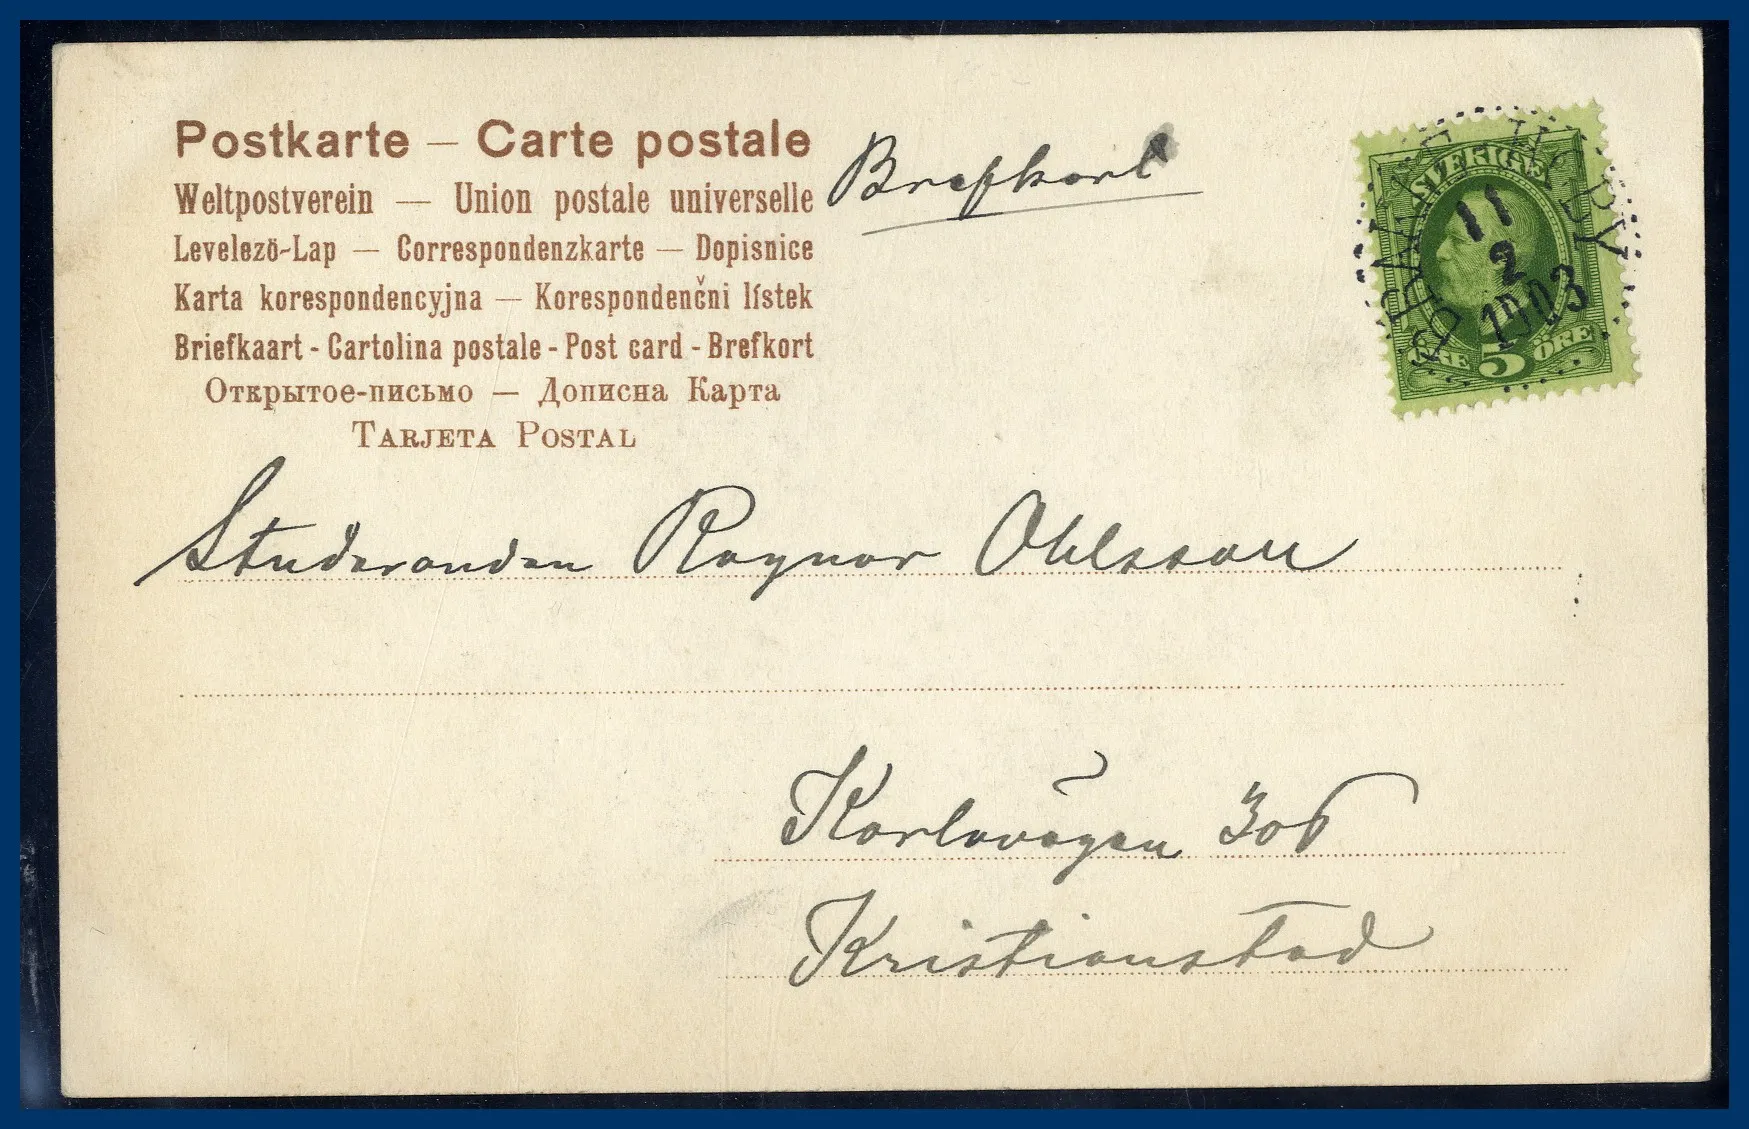 Postkarte – Carte postale
Brefkort
Weltpostverein — Union postale universelle
Levelezö-Lap — Correspondenzkarte — Dopisnice
Karta korespondencyjna — Korespondenčni lístek
Briefkaart - Cartolina postale - Post card - Brefkort
Открытое-письмо — Дописна Карта
Tarjeta Postal
SVERIGE
11
2
1903
5 ÖRE
Studeranden Ragnar Ohlsson
Karlavägen 306
Kristianstad